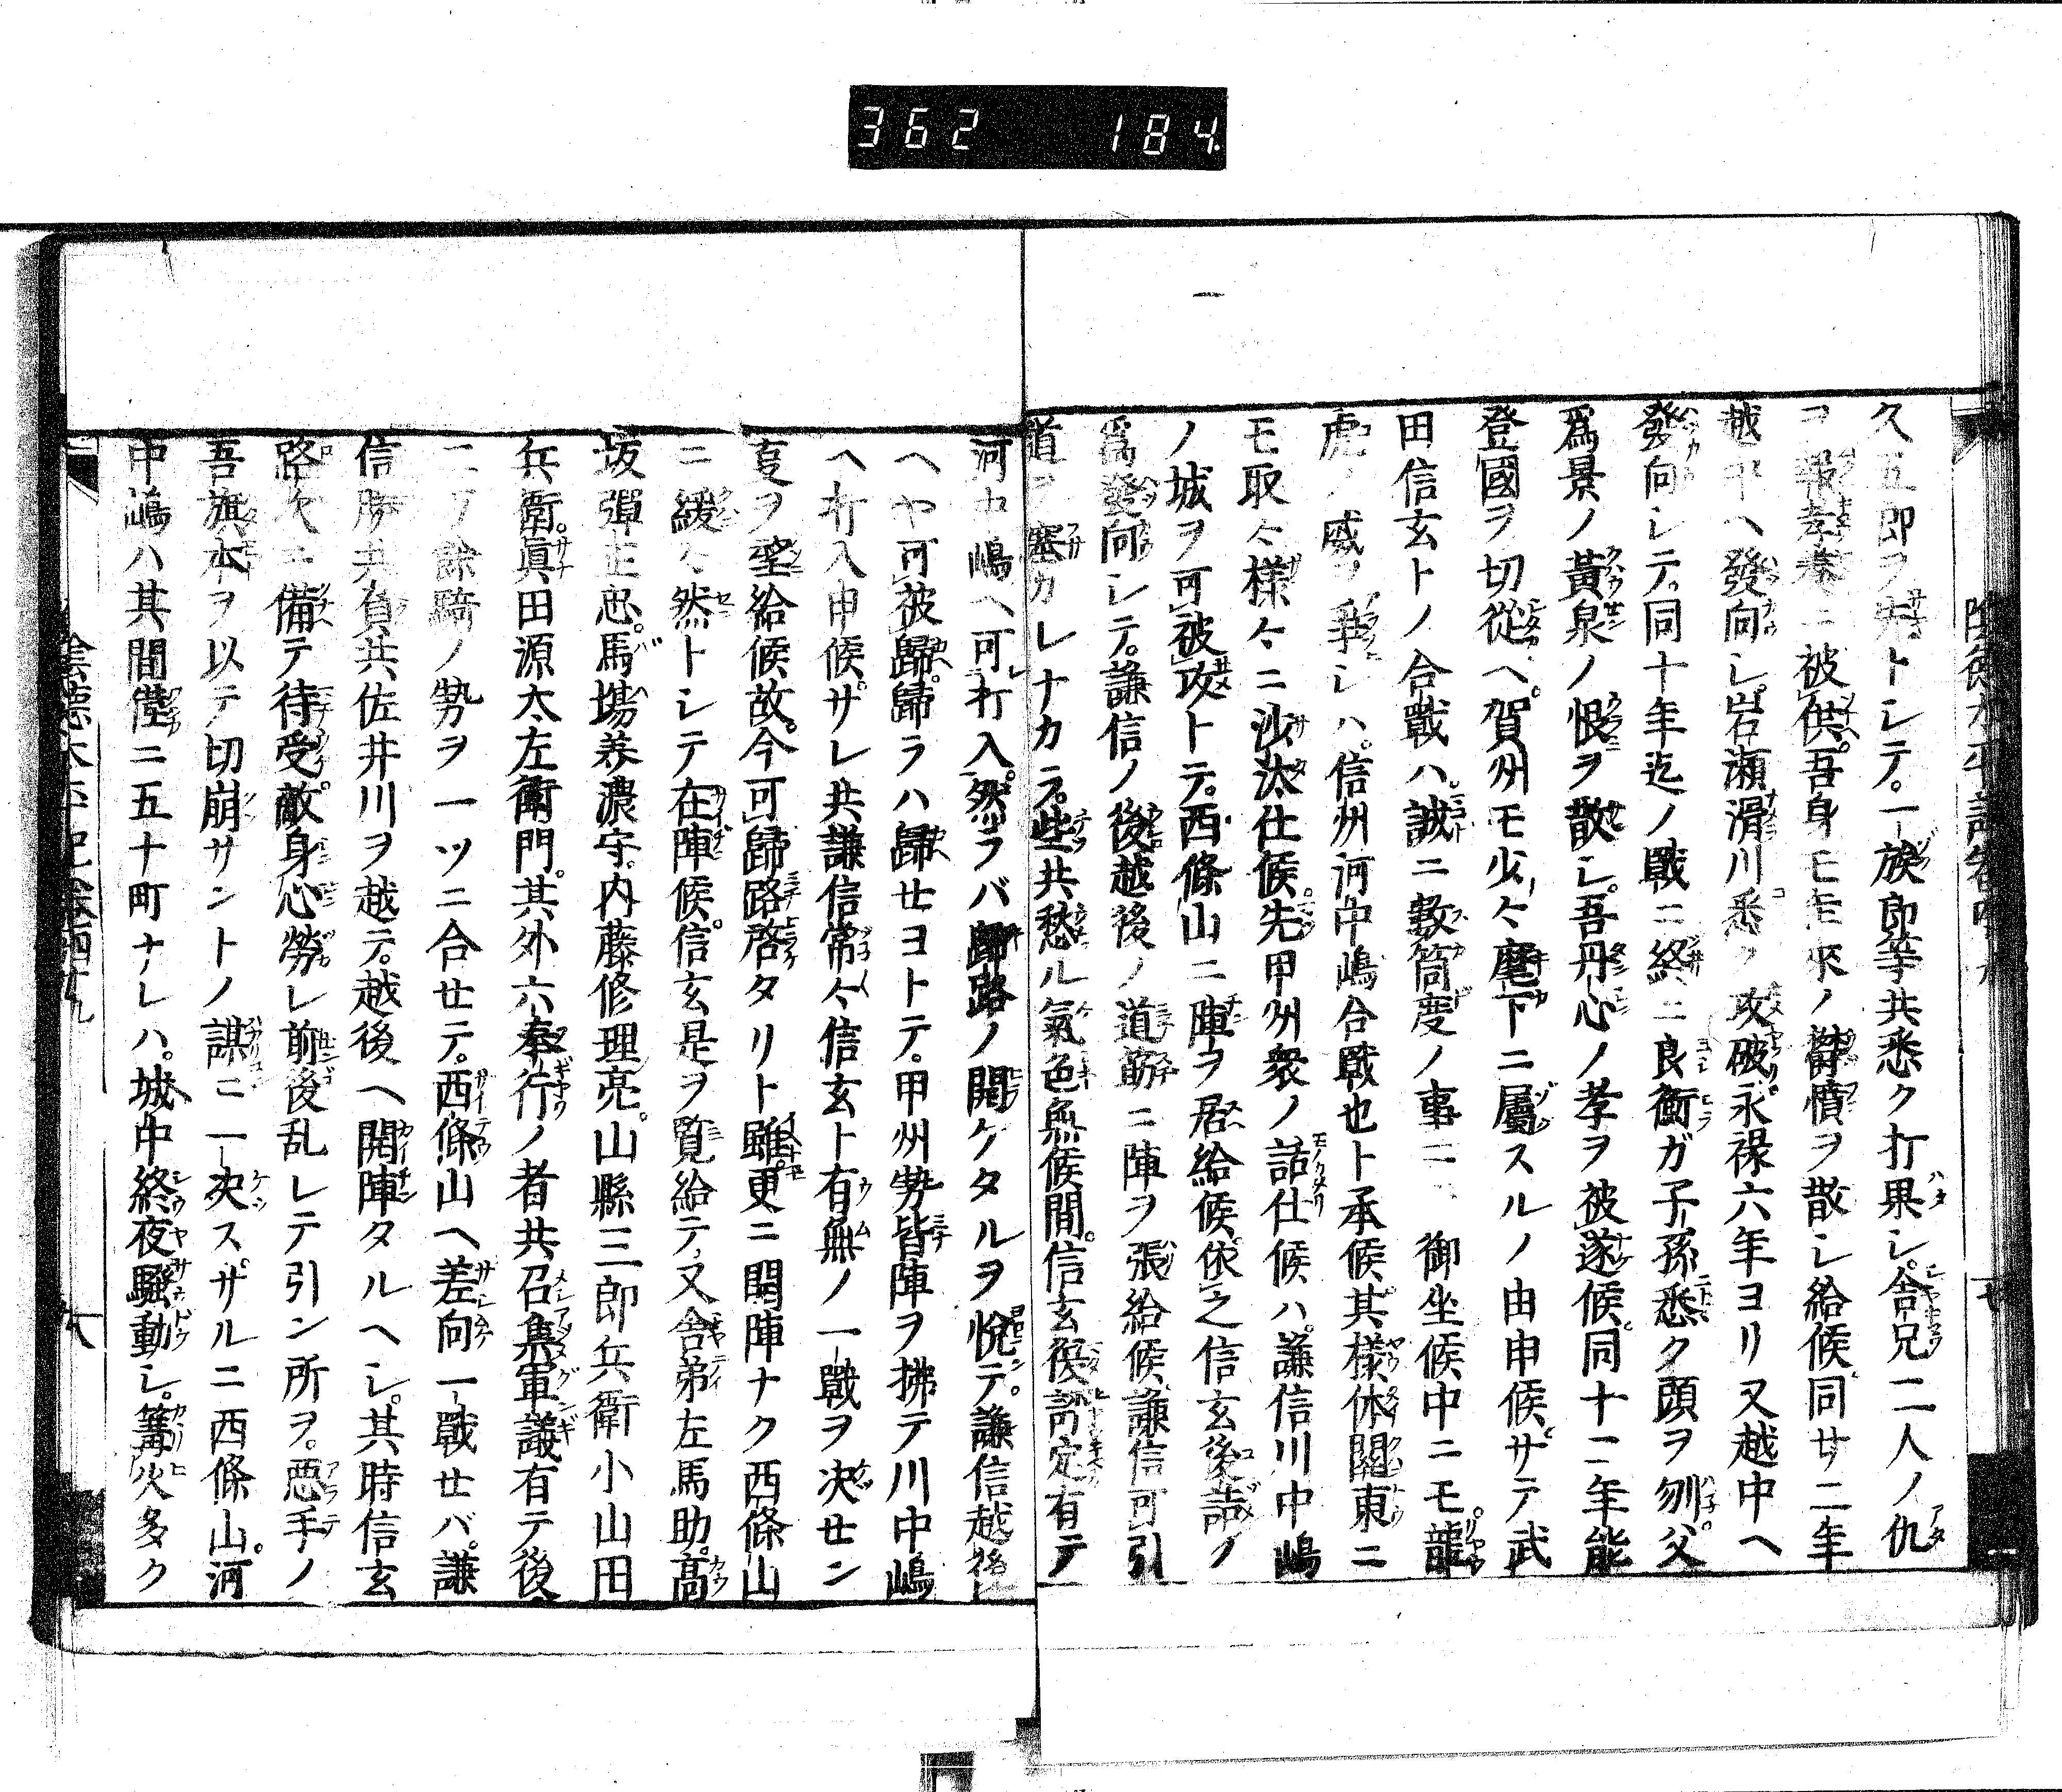 362 184
久五郎ヲ先トシテ。一族郎等共悉ク打果シ。舎兄二人ノ仇
ヲ報孝養ニ被供。吾身モ年来ノ欝憤ヲ散シ給候。同廿二年
越中ヘ發向シ。岩瀬滑川悉ク攻破。永禄六年ヨリ又越中ヘ
發向シテ。同十年迄ノ戰ニ終ニ良衡ガ子孫悉ク頭ヲ刎。父
爲景ノ黄泉ノ恨ヲ散シ。吾丹心ノ孝ヲ被遂候。同十二年能
登國ヲ切從ヘ。賀州モ少々麾下ニ屬スルノ由申候。サテ武
田信玄トノ合戰ハ。誠ニ數箇度ノ事ニ 御坐候中ニモ。龍
虎ノ威ヲ爭シハ。信州河中嶋合戰也ト承候。其様休關東ニ
モ取々様々ニ沙汰仕候。先甲州衆ノ話仕候ハ。謙信川中嶋
ノ城ヲ可被攻トテ。西條山ニ陣ヲ居給候。依之信玄後詰ノ
爲發向シテ。謙信ノ後越後ノ道筋ニ陣ヲ張給候。謙信可引
道ヲ塞カレナカラ。些共愁ル氣色無候間。信玄 評定有テ
河中嶋ヘ可打入。然ラバ歸路ノ開ケタルヲ悦テ。謙信越後
ヘヤ可被歸。歸ラハ歸セヨトテ。甲州勢皆陣ヲ拂テ川中嶋
ヘ打入申候。サレ共謙信常々信玄ト有無ノ一戰ヲ决セン
㕝ヲ望給候故。今可歸路啓タリト雖。更ニ開陣ナク西條山
ニ緩々然トシテ在陣候。信玄是ヲ覧給テ。又舎弟左馬助。高
坂彈正忠。馬塲美濃守。内藤修理亮。山縣三郎兵衛小山田
兵衛。眞田源太左衛門。其外六奉行ノ者共召集軍議有テ後。
二万餘騎ノ勢ヲ一ツニ合セテ。西條山ヘ差向一戰セバ。謙
信勝共負共佐井川ヲ越テ。越後ヘ開陣タルヘシ。其時信玄
路次ニ備テ待受。敵身心勞レ前後乱レテ引ン所ヲ。悪手ノ
吾旗本ヲ以テ切崩サントノ謀ニ一决ス。サルニ西條山。河
中嶋ハ其間僅ニ五十町ナレハ。城中終夜騒動シ。篝火多ク